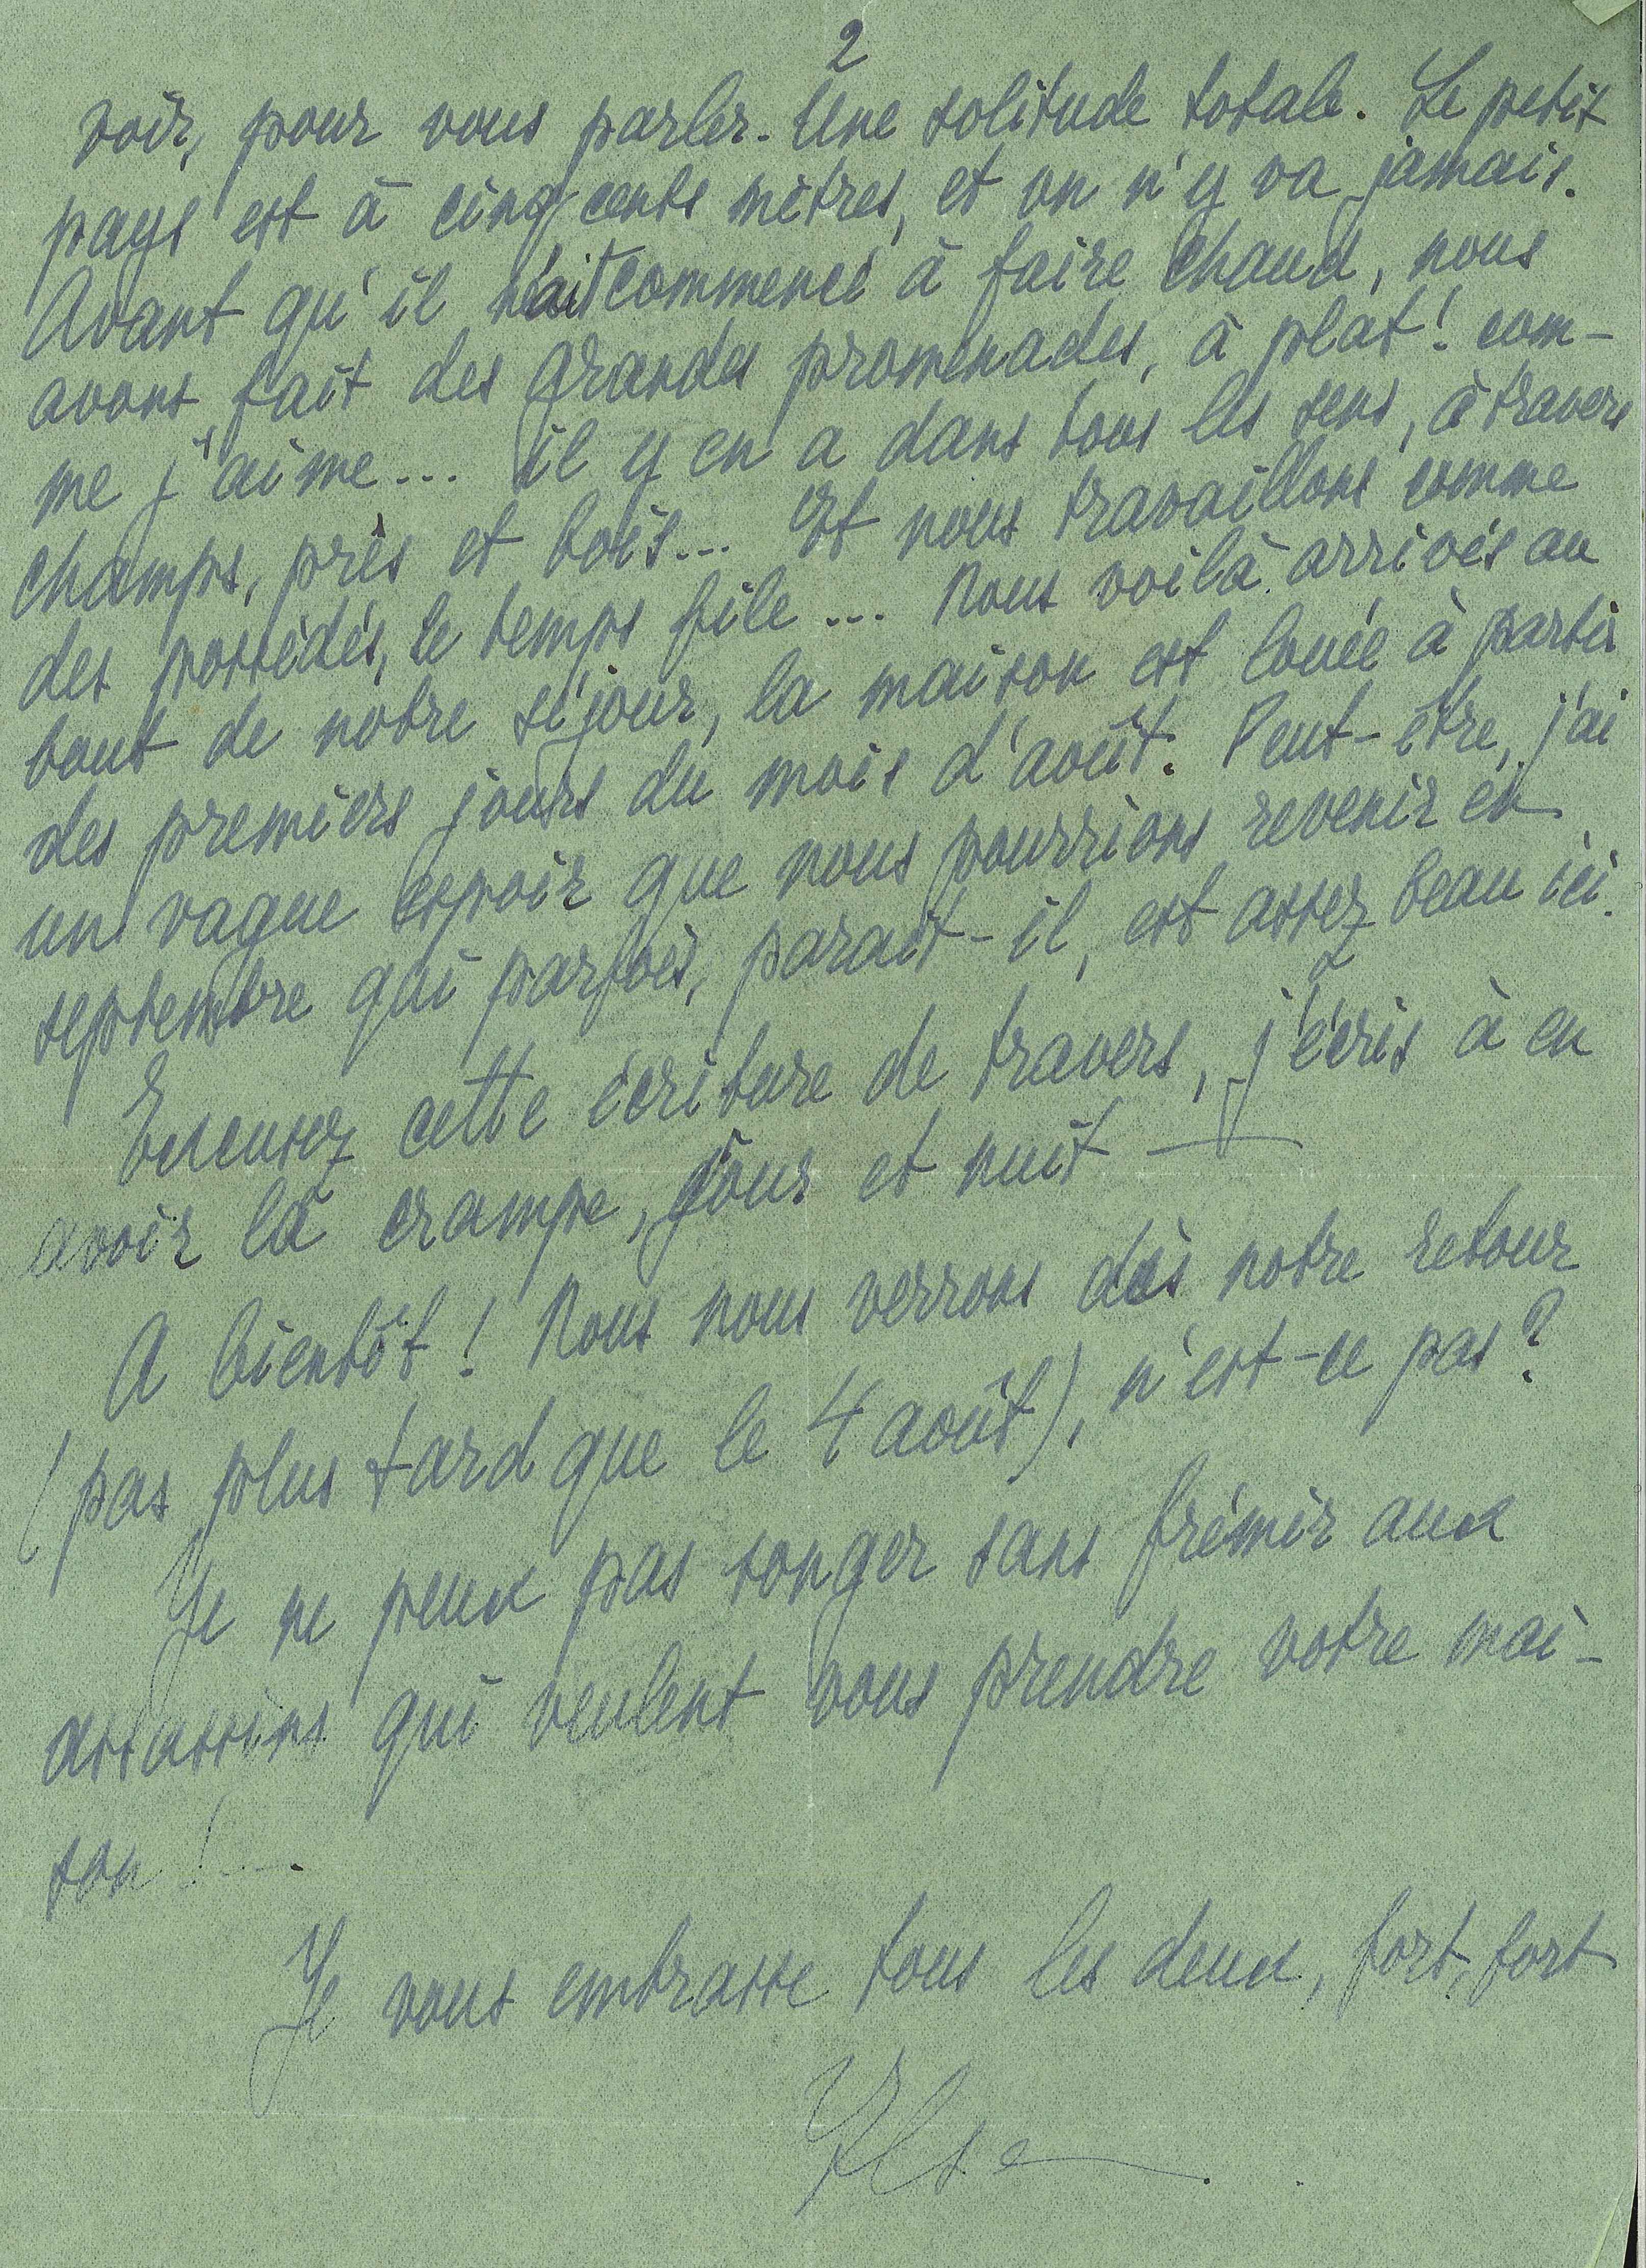 2
voir, pour vous parler. Une solitude totale. Le petit
pays est à cinq cents mètres, et on n'y va jamais.
Avant qu'il n'ait commencé à faire chaud, nous
avons fait des grandes promenades, à plat ! com-
me j'aime... il y en a dans tous les sens, à travers
champs, près et bois... Et nous travaillons comme
des possédés, le temps file... Nous voilà arrivés au
bout de notre séjour, la maison est louée à partir
des premiers jours du mois d'août. Peut-être, j'ai
un vague espoir que nous pourrions revenir en
septembre qui parfois, parait-il, est assez beau ici.
Excusez cette écriture de travers, j'écris à en
avoir la crampe, jour et nuit —
A bientôt ! Nous nous verrons dès notre retour
(pas plus tard que le 4 août), n'est-ce pas ?
Je ne peux pas songer sans frémir aux
assassins qui veulent vous prendre votre mai-
son !...
Je vous embrasse tous les deux, fort, fort
Elsa